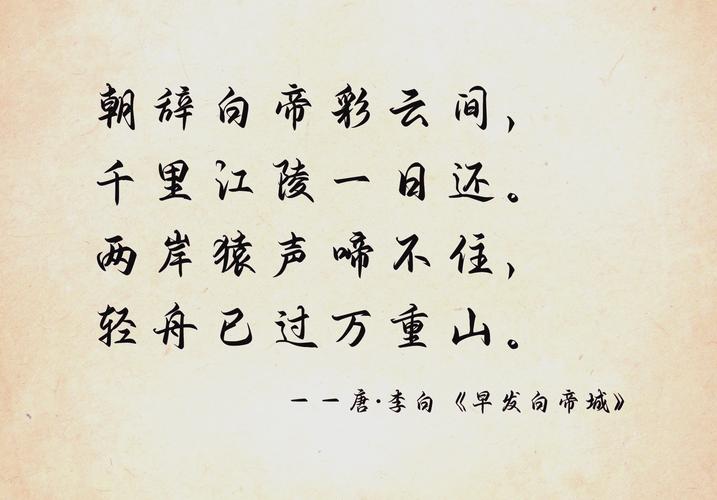 朝辞白帝彩云间，
千里江陵一日还。
两岸猿声啼不住，
轻舟已过万重山。
——唐·李白《早发白帝城》